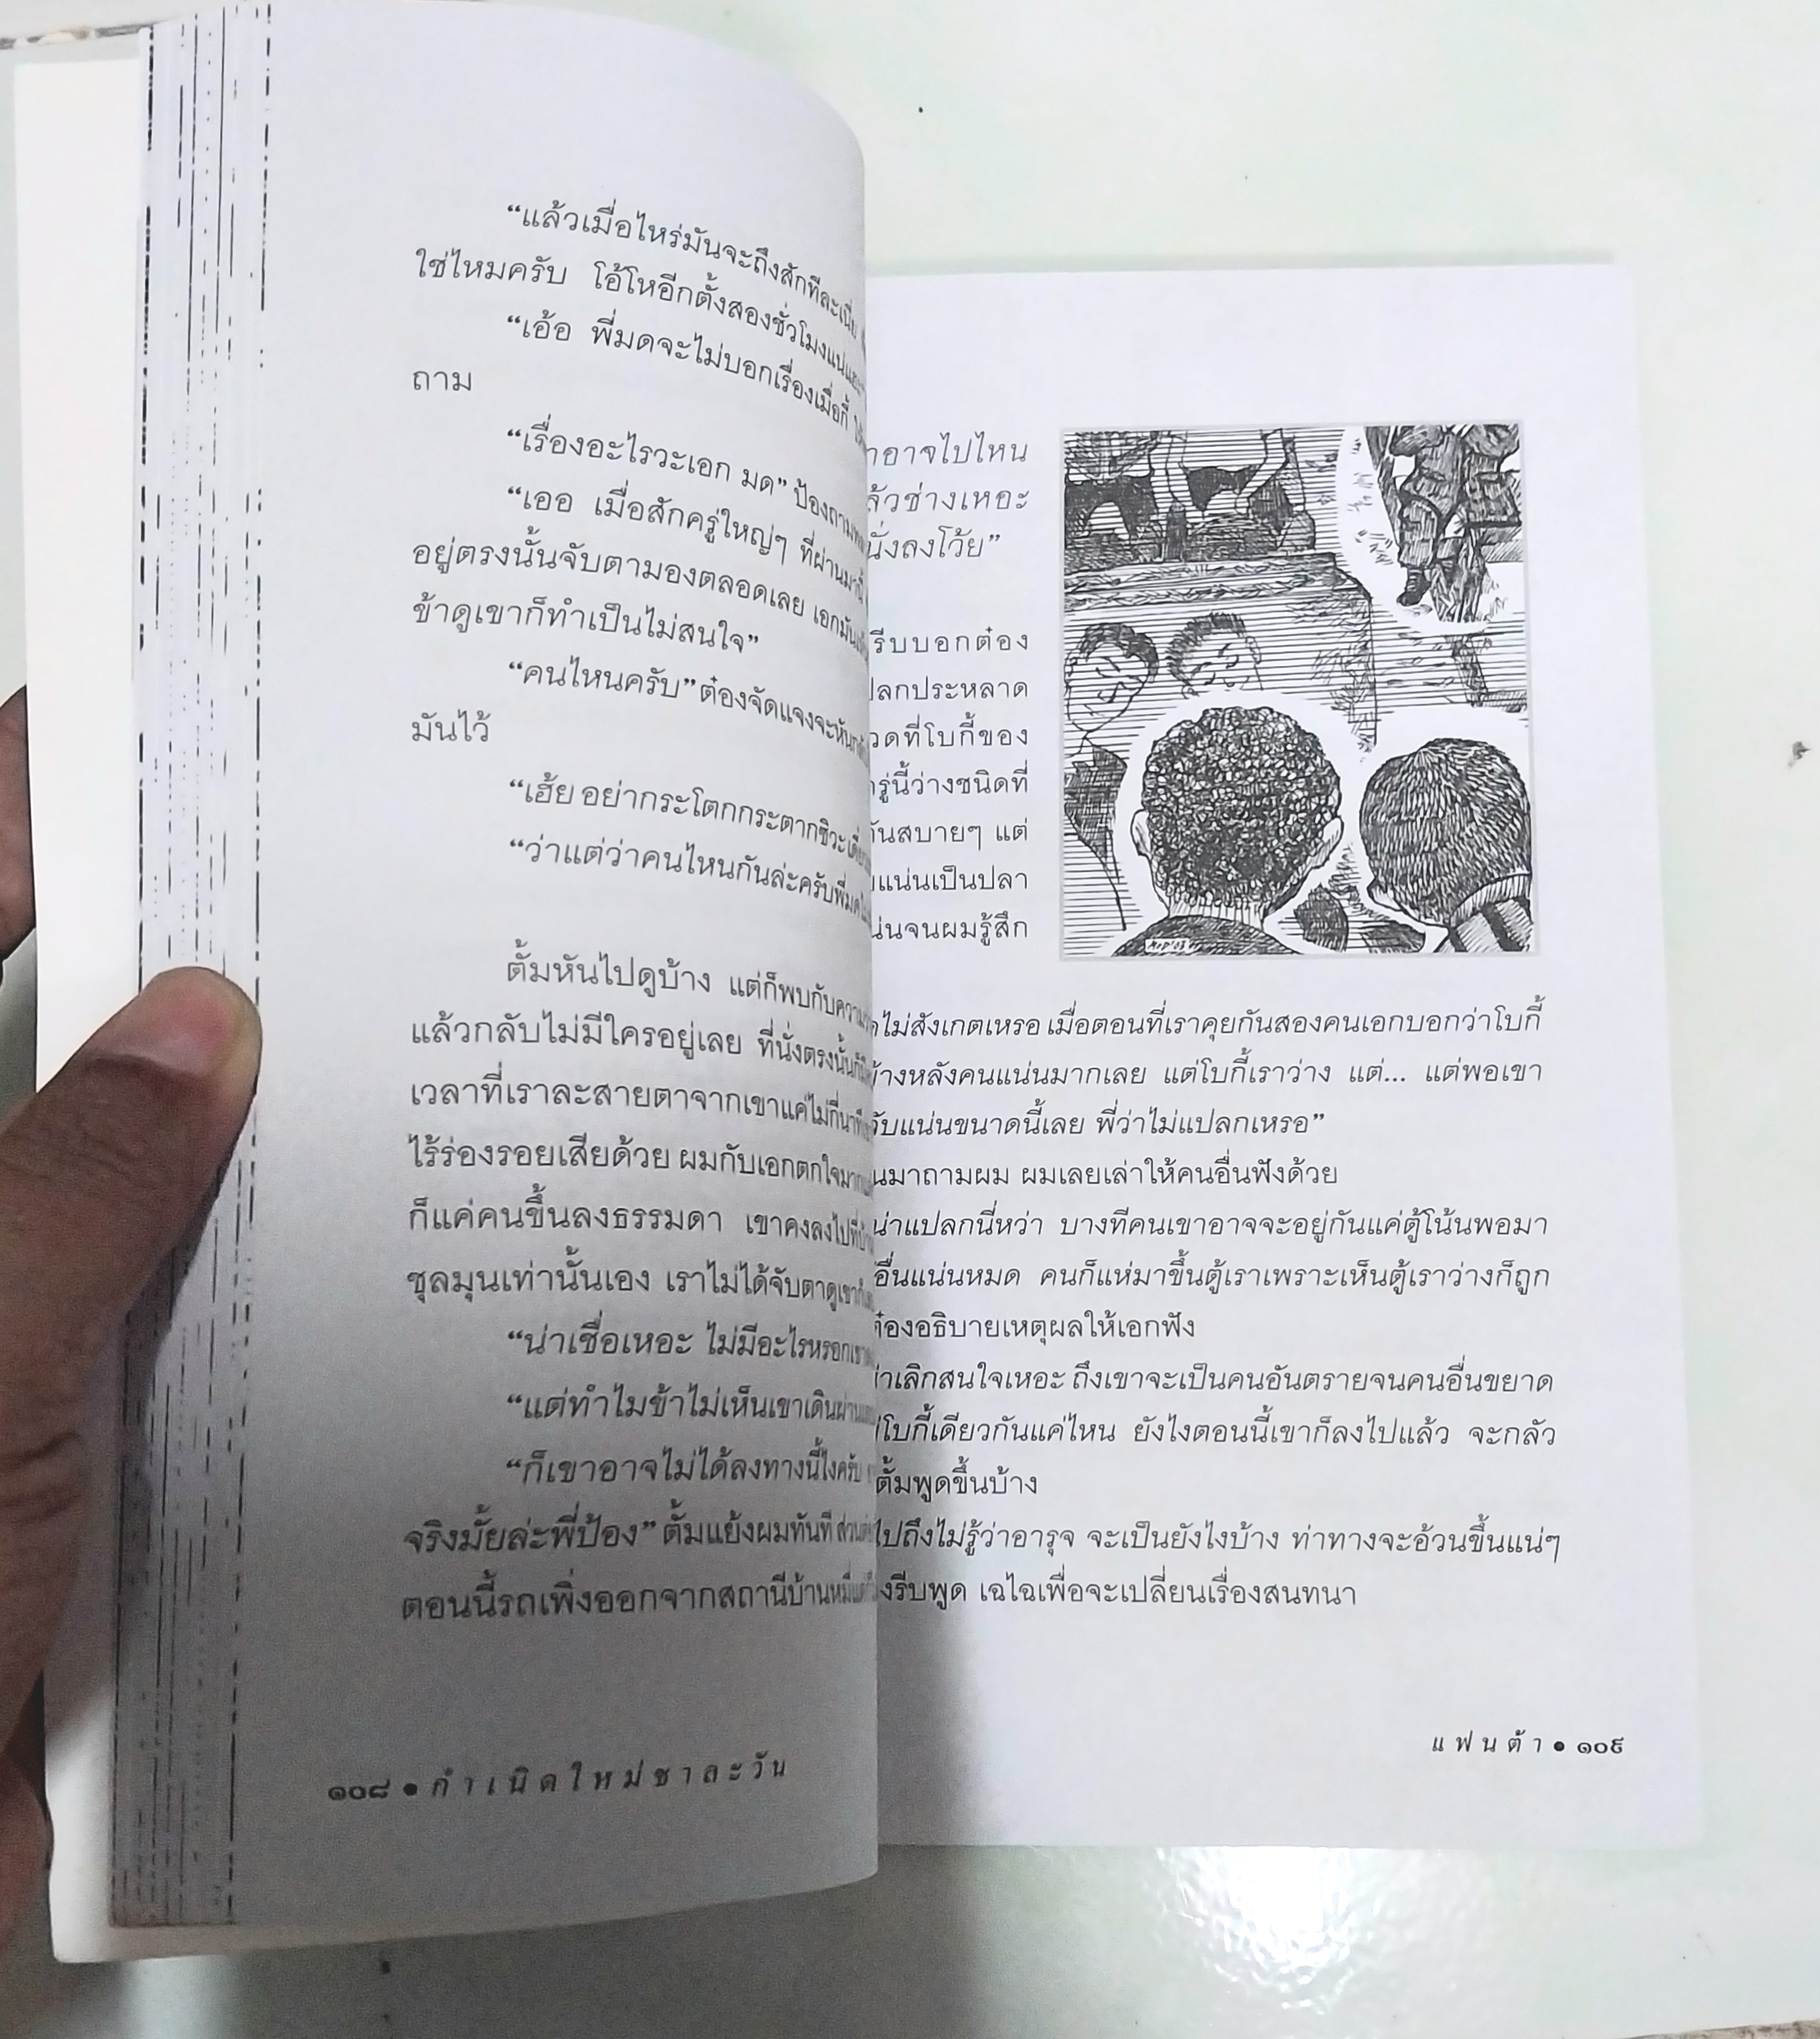 “แล้วเมื่อไหร่มันจะถึงสักทีละเนี่ย
ใช่ไหมครับ โอ้โหอีกตั้งสองชั่วโมงแน่
“เอ้อ พี่มดจะไม่บอกเรื่องเมื่อกี้
ถาม
“เรื่องอะไรวะเอก มด” ป้องถาม
“เออ เมื่อสักครู่ใหญ่ๆ ที่ผ่านมานี้
อยู่ตรงนั้นจับตามองตลอดเลย เอกมัน
ข้าดูเขาก็ทำเป็นไม่สนใจ”
“คนไหนครับ” ต๋องจัดแจงจะหัน
มันไว้
“เฮ้ย อย่ากระโตกกระตากซิวะ
“ว่าแต่ว่าคนไหนกันล่ะครับพี่มด
ตั้มหันไปดูบ้าง แต่ก็พบกับความ
แล้วกลับไม่มีใครอยู่เลย ที่นั่งตรงนั้น
เวลาที่เราละสายตาจากเขาแค่ไม่กี่นาที
ไร้ร่องรอยเสียด้วย ผมกับเอกตกใจมาก
ก็แค่คนขึ้นลงธรรมดา เขาคงลงไปที่
ชุลมุนเท่านั้นเอง เราไม่ได้จับตาดูเขา
“น่าเชื่อเหอะ ไม่มีอะไรหรอก
“แต่ทำไมข้าไม่เห็นเขาเดินผ่าน
“ก็เขาอาจไม่ได้ลงทางนี้ไงครับ
จริงมั้ยล่ะพี่ป้อง” ตั้มแย้งผมทันที
ตอนนี้รถเพิ่งออกจากสถานีบ้านหมี่
๑๐๘ • กำเนิดใหม่ชาละวัน
อาจไปไหน
ช่างเหอะ
นั่งลงโว้ย”
รีบบอกต๋อง
ประหลาด
ที่โบกี้ของ
นี้ว่างชนิดที่
กันสบายๆ แต่
แน่นเป็นปลา
จนผมรู้สึก
ไม่สังเกตเหรอ เมื่อตอนที่เราคุยกันสองคนเอกบอกว่าโบกี้
ข้างหลังคนแน่นมากเลย แต่โบกี้เราว่าง แต่... แต่พอเขา
แน่นขนาดนี้เลย พี่ว่าไม่แปลกเหรอ”
มาถามผม ผมเลยเล่าให้คนอื่นฟังด้วย
น่าแปลกนี่หว่า บางทีคนเขาอาจจะอยู่กันแค่ตู้โน้นพอมา
อื่นแน่นหมด คนก็แห่มาขึ้นตู้เราเพราะเห็นตู้เราว่างก็ถูก
ต๋องอธิบายเหตุผลให้เอกฟัง
เลิกสนใจเหอะ ถึงเขาจะเป็นคนอันตรายจนคนอื่นขยาด
โบกี้เดียวกันแค่ไหน ยังไงตอนนี้เขาก็ลงไปแล้ว จะกลัว
ตั้มพูดขึ้นบ้าง
ไปถึงไม่รู้ว่าอารุจ จะเป็นยังไงบ้าง ท่าทางจะอ้วนขึ้นแน่ๆ
รีบพูด เฉไฉเพื่อจะเปลี่ยนเรื่องสนทนา
แฟนต้า • ๑๐๙